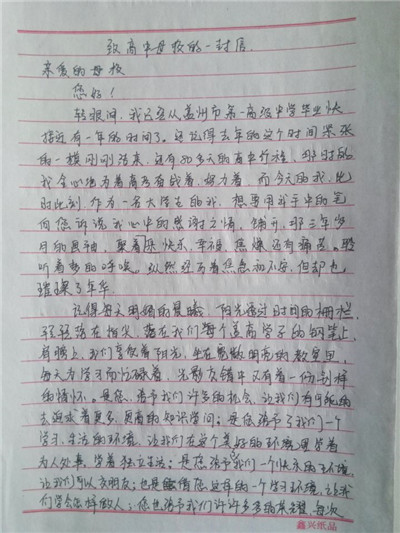 致高中母校的一封信
亲爱的母校
您好!
转眼间,我已经从孟州市第一高级中学毕业快
接近有一年的时间了。还记得去年的这个时间紧张
的一模刚刚结束,还有30多天的高中行程,那时的
我全心地为着高考奋战着,努力着,而今天的我,此
时此刻,作为一名大学生的我,想要用我手中的笔
向您诉说我心中的感谢之情,铺开,那三年岁
月的思绪,聚着快乐、幸福、焦燥还有痛苦。聆
听着梦的呼唤。纵然经历着焦急和不安,但却也
璀璨了年华
记得每天明媚的晨曦,阳光透过时间的栅栏,
轻轻落在指尖,落在我们每个莘高学子的钢笔上,
肩膀上,我们享受着阳光,坐在宽敞明亮的教室里,
每天为学习而忙碌着,光影交错中又有着一份别样
的情怀。是您,给予我们许多的机会,让我们有可能的
去追求着更多,更高的知识学问;是您给予了我们一个
学习、生活的环境,让我们在这个美好的环境里学着
为人处事,学着独立生活;是您给予我们一个快乐的环境,
让我们可以交朋友;也是您这样的一个学习环境,让我
们学会怎样做人;您也给予我们许许多多的,每次
鑫兴纸品